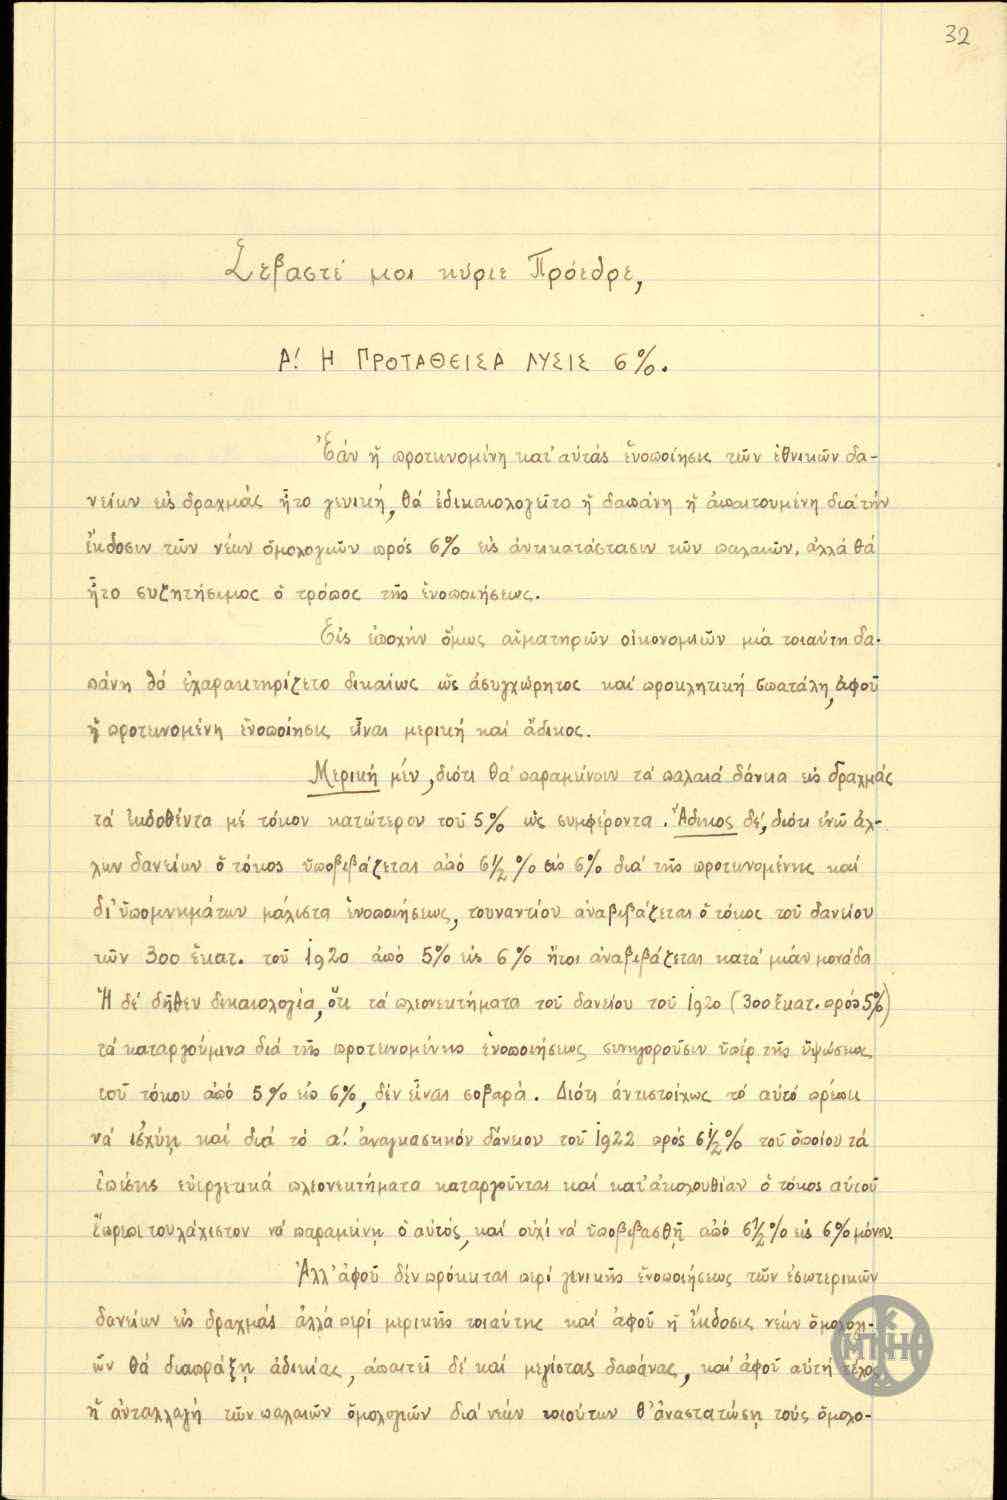 32
Σεβαστέ μοι κύριε Πρόεδρε,
Α! Η ΠΡΟΤΑΘΕΙΣΑ ΛΥΣΙΣ 6%.
Ἐάν ἡ προτεινομένη κατ' αὐτάς ἑνοποίησις τῶν ἐθνικῶν δα-
νείων εἰς δραχμάς ἦτο γενική, θά ἐδικαιολογεῖτο ἡ δαπάνη ἡ ἀπαιτουμένη διά τήν
ἔκδοσιν τῶν νέων ὁμολογιῶν πρός 6% εἰς ἀντικατάστασιν τῶν παλαιῶν, ἀλλά θά
ἦτο συζητήσιμος ὁ τρόπος τῆς ἑνοποιήσεως.
Εἰς ἐποχήν ὅμως αἱματηρῶν οἰκονομιῶν μιά τοιαύτη δα-
πάνη θά ἐχαρακτηρίζετο δικαίως ὡς ἀσυγχώρητος καί προκλητική σπατάλη, ἀφοῦ
ἡ προτεινομένη ἑνοποίησις εἶναι μερική καί ἄδικος.
Μερική μέν, διότι θά παραμείνουν τά παλαιά δάνεια εἰς δραχμάς
τά ἐκδοθέντα μέ τόκον κατώτερον τοῦ 5% ὡς συμφέροντα. Ἄδικος δέ, διότι ἐνῶ ἄλ-
λων δανείων ὁ τόκος ὑποβιβάζεται ἀπό 6½% εἰς 6% διά τῆς προτεινομένης καί
δι' ὑπομνημάτων μάλιστα ἑνοποιήσεως, τουναντίον ἀναβιβάζεται ὁ τόκος τοῦ δανείου
τῶν 300 ἑκατ. τοῦ 1920 ἀπό 5% εἰς 6% ἤτοι ἀναβιβάζεται κατά μιάν μονάδα
Ἡ δέ δῆθεν δικαιολογία, ὅτι τά πλεονεκτήματα τοῦ δανείου τοῦ 1920 (300 ἑκατ. πρός 5%)
τά καταργούμενα διά τῆς προτεινομένης ἑνοποιήσεως συνηγοροῦσιν ὑπέρ τῆς ὑψώσεως
τοῦ τόκου ἀπό 5% εἰς 6%, δέν εἶναι σοβαρά. Διότι ἀντιστοίχως τό αὐτό πρέπει
νά ἰσχύῃ καί διά τό α! ἀναγκαστικόν δάνειον τοῦ 1922 πρός 6½% τοῦ ὁποίου τά
ἐπίσης εὐεργετικά πλεονεκτήματα καταργοῦνται καί κατ' ἀκολουθίαν ὁ τόκος αὐτοῦ
ἔπρεπε τουλάχιστον νά παραμείνῃ ὁ αὐτός, καί οὐχί νά ὑποβιβασθῇ ἀπό 6½% εἰς 6% μόνον.
Ἀλλ' ἀφοῦ δέν πρόκειται περί γενικῆς ἑνοποιήσεως τῶν ἐσωτερικῶν
δανείων εἰς δραχμάς ἀλλά περί μερικῆς τοιαύτης καί ἀφοῦ ἡ ἔκδοσις νέων ὁμολογι-
ῶν θά διαπράξῃ ἀδικίας, ἀπαιτεῖ δέ καί μεγίστας δαπάνας, καί ἀφοῦ αὐτή τέλος
ἡ ἀνταλλαγή τῶν παλαιῶν ὁμολογιῶν διά νέων τοιούτων θ' ἀναστατώσῃ τούς ὁμολο-